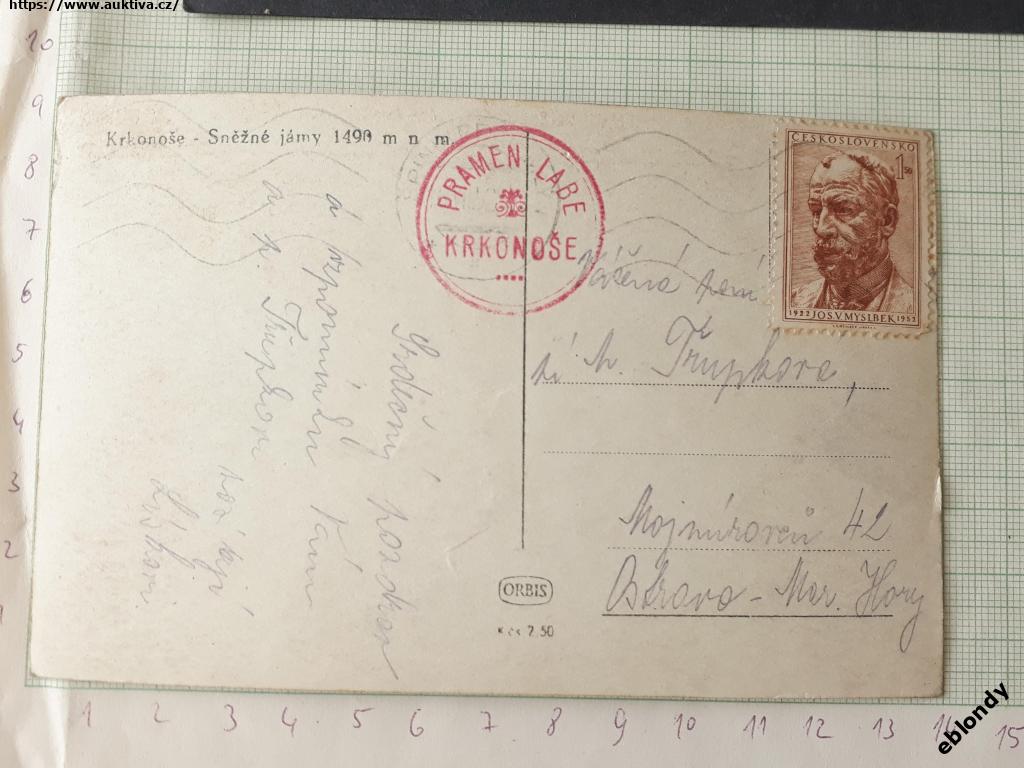 https://www.auktiva.cz/
Krkonoše - Sněžné jámy 1490 m n m
PRAMEN LABE
KRKONOŠE
ČESKOSLOVENSKO
1 50
1922 JOS.V.MYSLBEK 1952
Vážená paní
Třupkova,
Mojmírovců 42
Ostrava - Mar. Hory
Srdečný pozdrav
a vzpomínku Vám
a p.
ORBIS
Kčs 2.50
10
9
8
7
6
5
4
3
2
1
1 2 3 4 5 6 7 8 9 10 11 12 13 14 15
eblondy